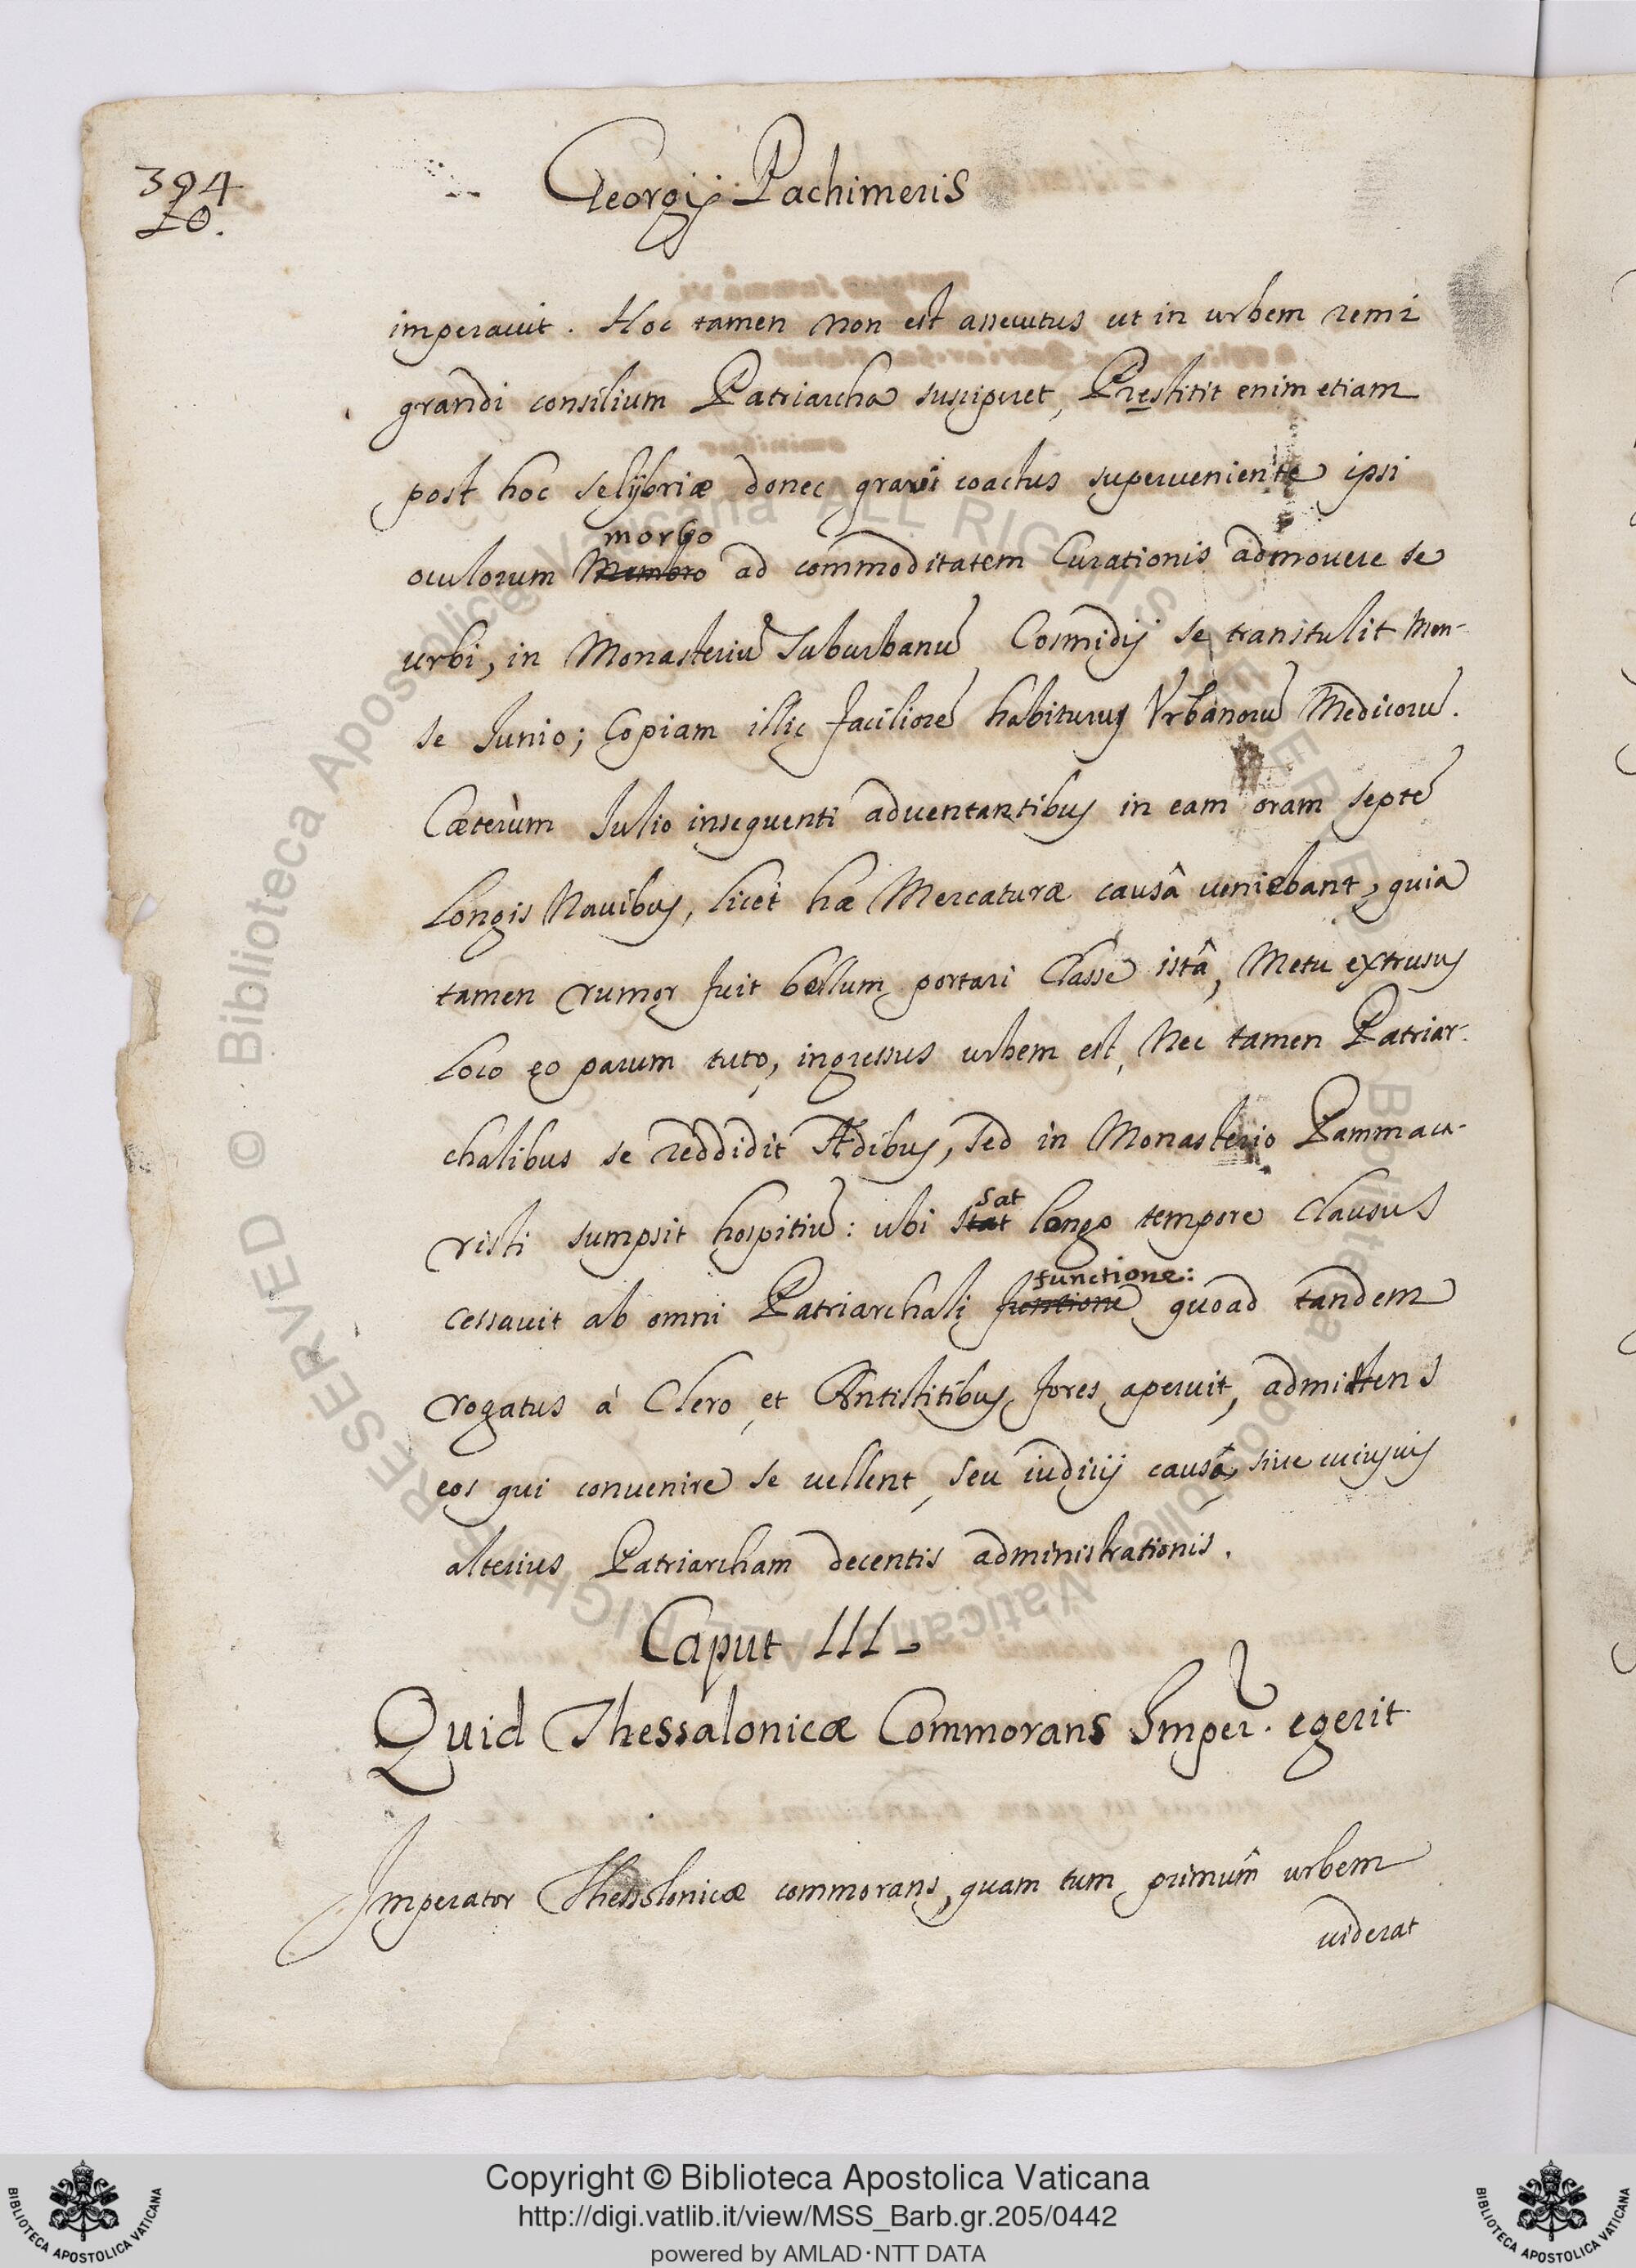 394
20.
Georgij Pachimeris
imperauit. Hoc tamen non est assecutus ut in urbem remi
grandi consilium Patriarcha susciperet, Prestitit enim etiam
post hoc selijbriæ donec gravi coactus superueniente ipsi
morbo
oculorum Membro ad commoditatem Curationis admouere se
urbi, in Monasteriũ Suburbanũ Cosmidij se transtulit Men-
se Junio; Copiam illic faciliorẽ habiturus Vrbanorũ Medicorũ.
Cæterùm Julio insequenti aduentantibus in eam oram septẽ
Longis Nauibus, licèt hæ Mercaturæ causâ ueniebant, quia
tamen rumor fuit bellum portari Classe istâ, Metu extrusus
Loco eo parum tuto, ingressus urbem est, Nec tamen Patriar-
chalibus se reddidit Ædibus, sed in Monasterio Pammaca-
risti sumpsit hospitiũ: ubi stat sat longo tempore clausus
functione:
cessauit ab omni Patriarchali functione quoad tandem
rogatus à Clero et Antistitibus fores aperuit, admittens
eos qui conuenire se uellent, seu iudicij causâ, siue cuiusuis
alterius Patriarcham decentis administrationis.
Caput III
Quid Thessalonicæ Commorans Imper. egerit
Imperator Thesslonicæ commorans, quam tum primum̂ urbem
uiderat
Biblioteca Apostolica Vaticana ALL RIGHTS RESERVED © Biblioteca Apostolica Vaticana ALL RIGHTS RESERVED ©
Copyright © Biblioteca Apostolica Vaticana
http://digi.vatlib.it/view/MSS_Barb.gr.205/0442
powered by AMLAD·NTT DATA
BIBLIOTECA APOSTOLICA VATICANA
BIBLIOTECA APOSTOLICA VATICANA